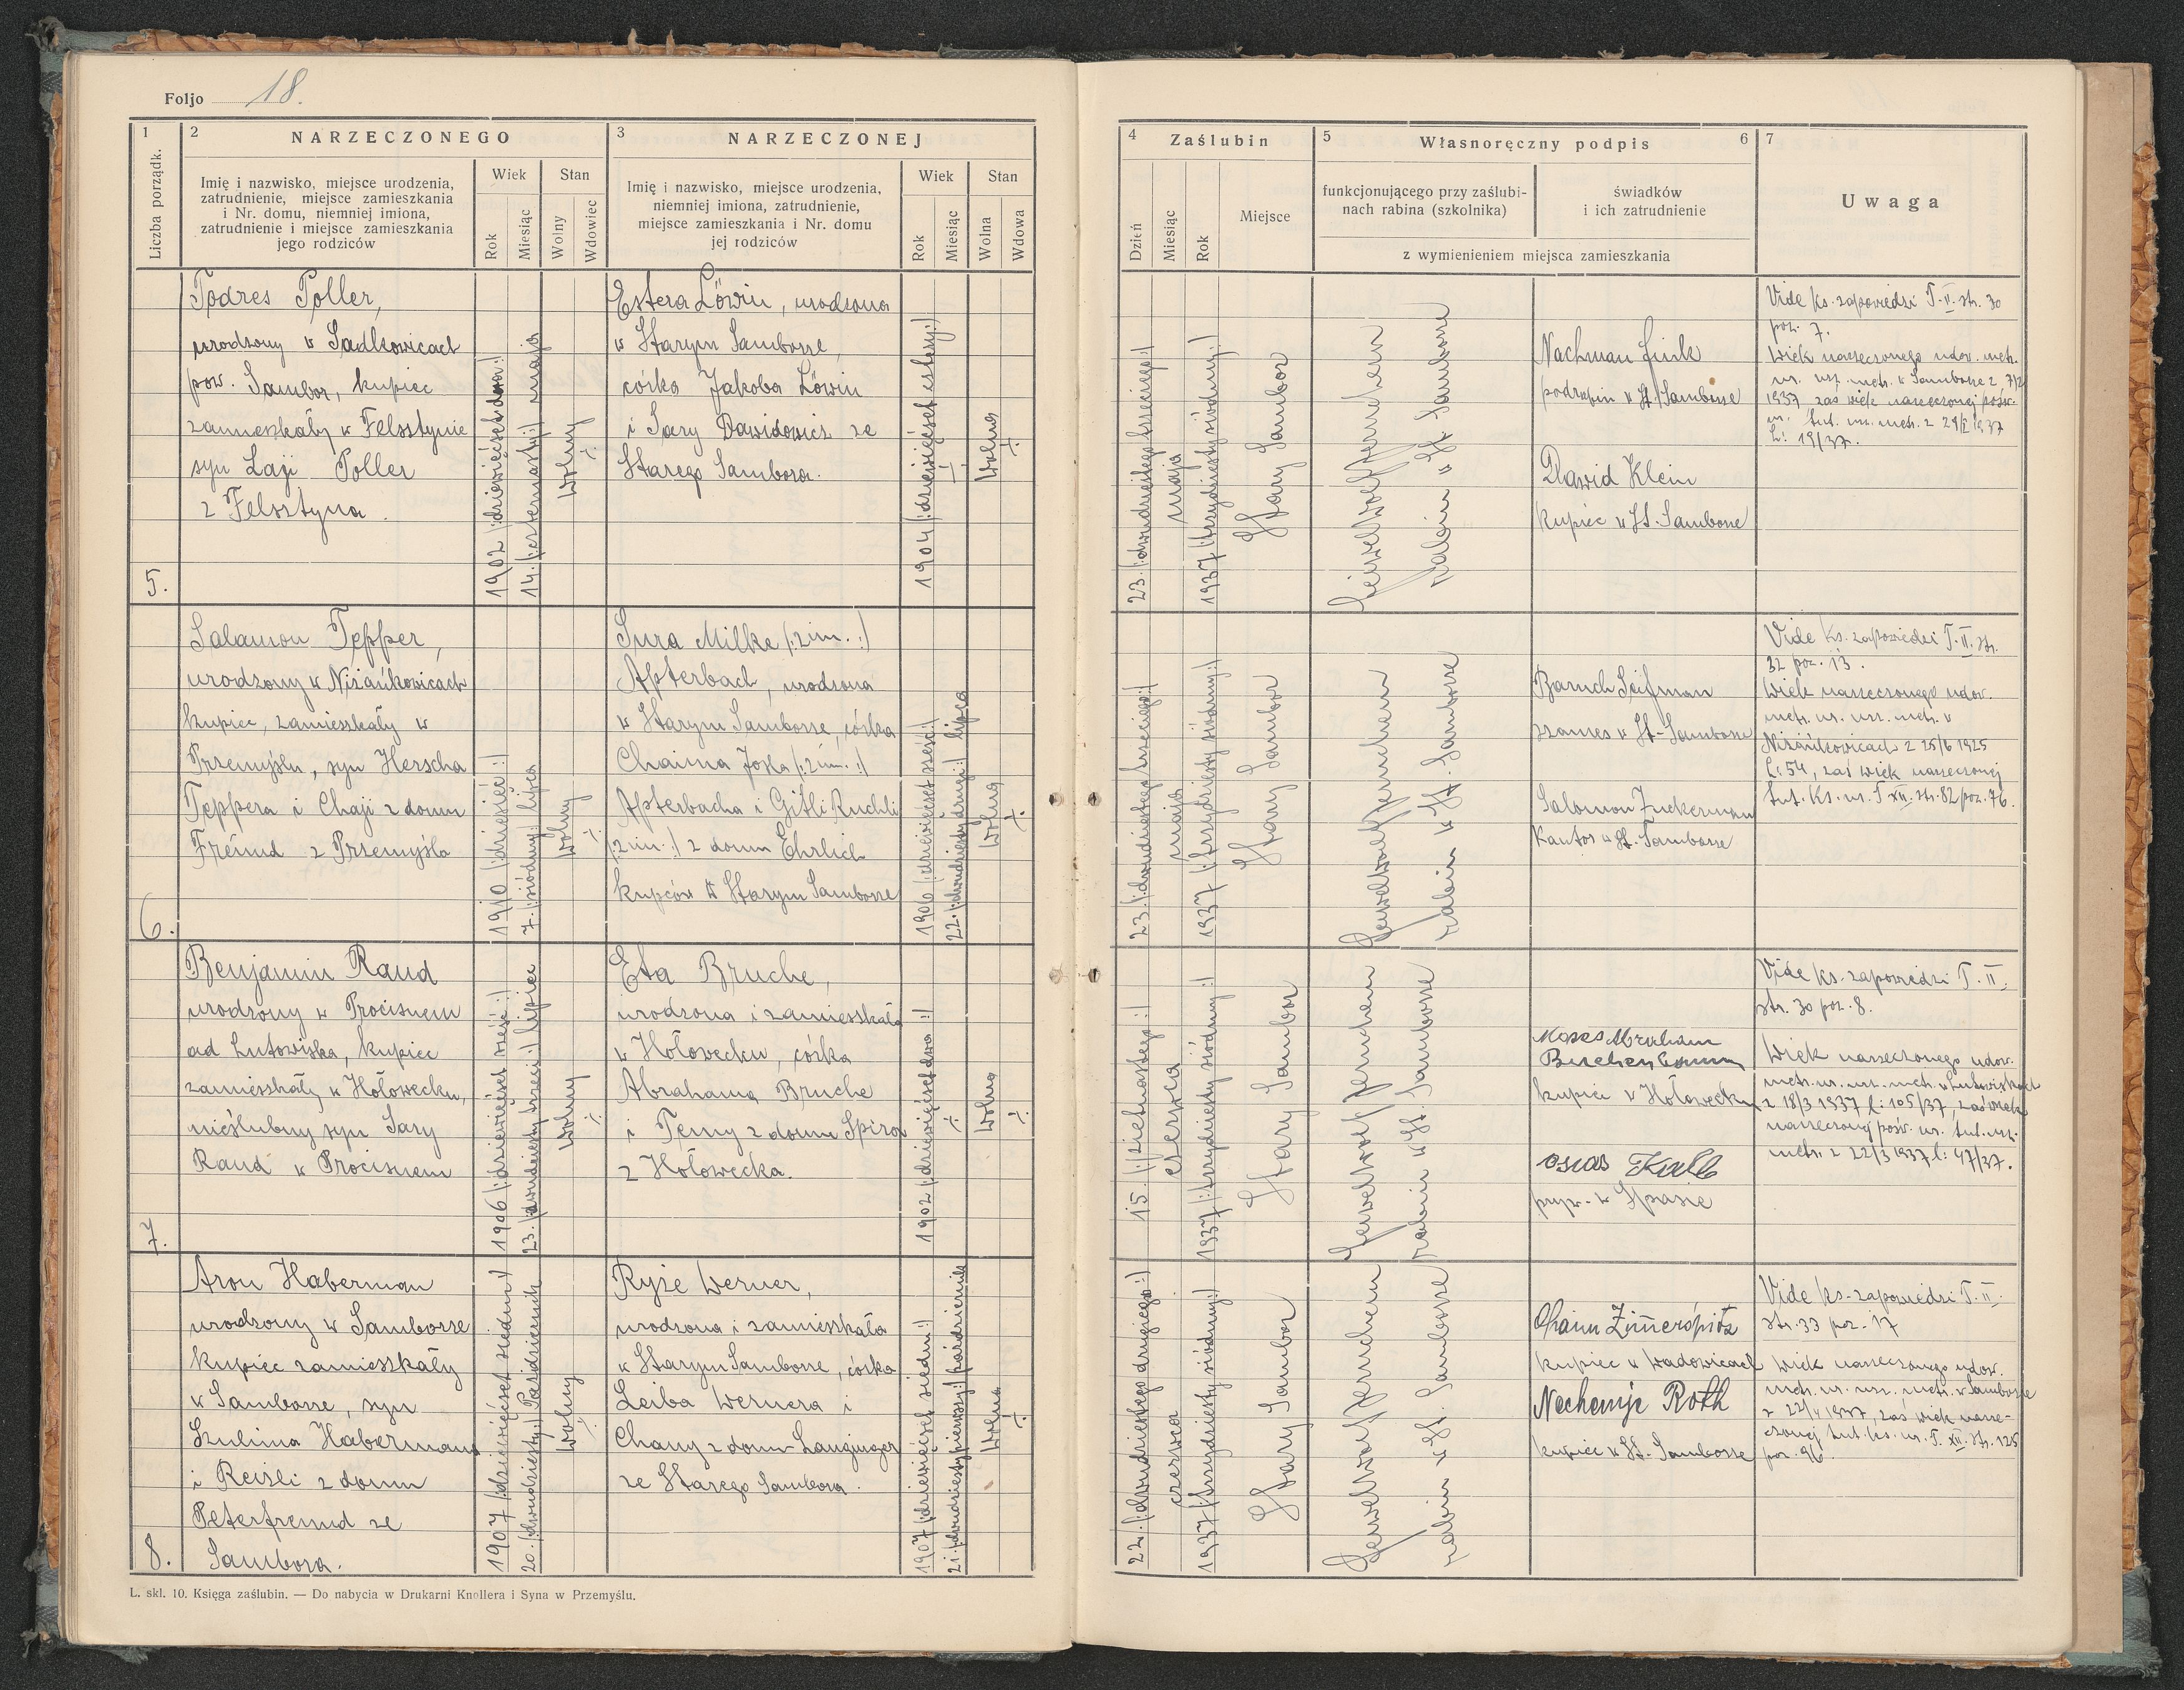 Foljo 18.
1
Liczba porządk.
2 NARZECZONEGO
Imię i nazwisko, miejsce urodzenia,
zatrudnienie, miejsce zamieszkania
i Nr. domu, niemniej imiona,
zatrudnienie i miejsce zamieszkania
jego rodziców
Wiek
Rok
Miesiąc
Stan
Wolny
Wdowiec
3 NARZECZONEJ
Imię i nazwisko, miejsce urodzenia,
niemniej imiona, zatrudnienie,
miejsce zamieszkania i Nr. domu
jej rodziców
Wiek
Rok
Miesiąc
Stan
Wolna
Wdowa
4 Zaślubin
Dzień
Miesiąc
Rok
Miejsce
5 Własnoręczny podpis 6
funkcjonującego przy zaślubi-
nach rabina (szkolnika)
świadków
i ich zatrudnienie
z wymienieniem miejsca zamieszkania
7
Uwaga
5.
Todres Poller,
urodzony w Sadkowicach
pow. Sambor, kupiec
zamieszkały w Felsztynie
syn Laji Poller
z Felsztyna.
1902 /:dziewięćset dwa:/
14. /:czternasty:/ maja
Wolny
Estera Löwin, urodzona
w Starym Samborze,
córka Jakoba Löwin
i Sary Dawidowicz ze
Starego Sambora.
1904 /:dziewięćset cztery:/
Wolna
23. /:dwudziestego trzeciego:/
maja
1937 /:trzydziesty siódmy:/
Stary Sambor
rabin w St. Samborze
Nachman Fink
podrabin w St. Samborze
Dawid Klein
kupiec w St. Samborze
Vide ks. zapowiedzi T. II. str. 30
poz. 7.
Wiek narzeczonego udow. metr.
ur. urz. metr. w Samborze z 7/2
1937 zaś wiek narzeczonej pośw.
ur. tut. urz. metr. z 29/I 1937
L: 19/37.
6.
Salamon Tepper,
urodzony w Niżańkowicach
kupiec, zamieszkały w
Przemyślu, syn Herscha
Teppera i Chaji z domu
Freund z Przemyśla
1910 /:dziesięć:/
7. /:siódmy:/ lipca
Wolny
Sura Milke (:2 im.:)
Apterbach, urodzona
w Starym Samborze, córka
Chaima Joska (:2 im.:)
Apterbacha i Gitli Ruchli
(:2 im.:) z domu Ehrlich
kupców w Starym Samborze
1906 /:dziewięćset sześć:/
22. /:dwudziesty drugi:/ lipca
Wolna
23. /:dwudziestego trzeciego:/
maja
1937 /:trzydziesty siódmy:/
Stary Sambor
rabin w St. Samborze
Baruch Seifman
szames w St. Samborze
Salomon Zuckerman
Kantor w St. Samborze
Vide ks. zapowiedzi T. II. str.
32 poz. 13.
Wiek narzeczonego udow.
metr. ur. urz. metr. w
Niżańkowicach z 25/6 1925
L: 54, zaś wiek narzeczonej
tut. ks. ur. T XII. str. 82 poz. 76.
7.
Benjamin Rand
urodzony w Procisnem
ad Lutowiska, kupiec
zamieszkały w Hołowecku,
nieślubny syn Sary
Rand w Procisnem
1906 /:dziewięćset sześć:/
23. /:dwudziesty trzeci:/ lipiec
Wolny
Eta Bruche,
urodzona i zamieszkała
w Hołowecku, córka
Abrahama Bruche
i Temy z domu Spira
z Hołowecka.
1902 /:dziewięćset dwa:/
Wolna
15. /:piętnastego:/
czerwca
1937 /:trzydziesty siódmy:/
Stary Sambor
rabin w St. Samborze
Moses Abraham
kupiec w Hołowecku
Osias Kalb
pryw. w Spasie
Vide ks. zapowiedzi T. II.
str. 30 poz. 8.
Wiek narzeczonego udow.
metr. ur. urz. metr. w Lutowiskach
z 18/3 1937 l: 105/37, zaś wiek
narzeczonej pośw. ur. tut. urz.
metr. z 22/3 1937 l: 47/37.
8.
Aron Haberman
urodzony w Samborze
kupiec zamieszkały
w Samborze, syn
Szulima Habermana
i Reizli z domu
Peterfreund ze
Sambora.
1907 /:dziewięćset siedm:/
20. /:dwudziesty:/ Październik
Wolny
Ryze Werner,
urodzona i zamieszkała
w Starym Samborze, córka
Leiba Wernera i
Chany z domu Langinger
ze Starego Sambora.
1907 /:dziewięćset siedm:/
21. /:dwudziesty pierwszy:/ październik
Wolna
22. /:dwudziestego drugiego:/
czerwca
1937 /:trzydziesty siódmy:/
Stary Sambor
rabin w St. Samborze
Chaim Zimerspitz
kupiec w Wadowicach
Nechemje Roth
kupiec w St. Samborze
Vide ks. zapowiedzi T. II.
str. 33 poz. 17
Wiek narzeczonego udow.
metr. ur. urz. metr. w Samborze
z 22/4 1937, zaś wiek narze-
czonej tut. ks. ur. T. XII. str. 125
poz. 96.
L. skl. 10. Księga zaślubin. — Do nabycia w Drukarni Knollera i Syna w Przemyślu.